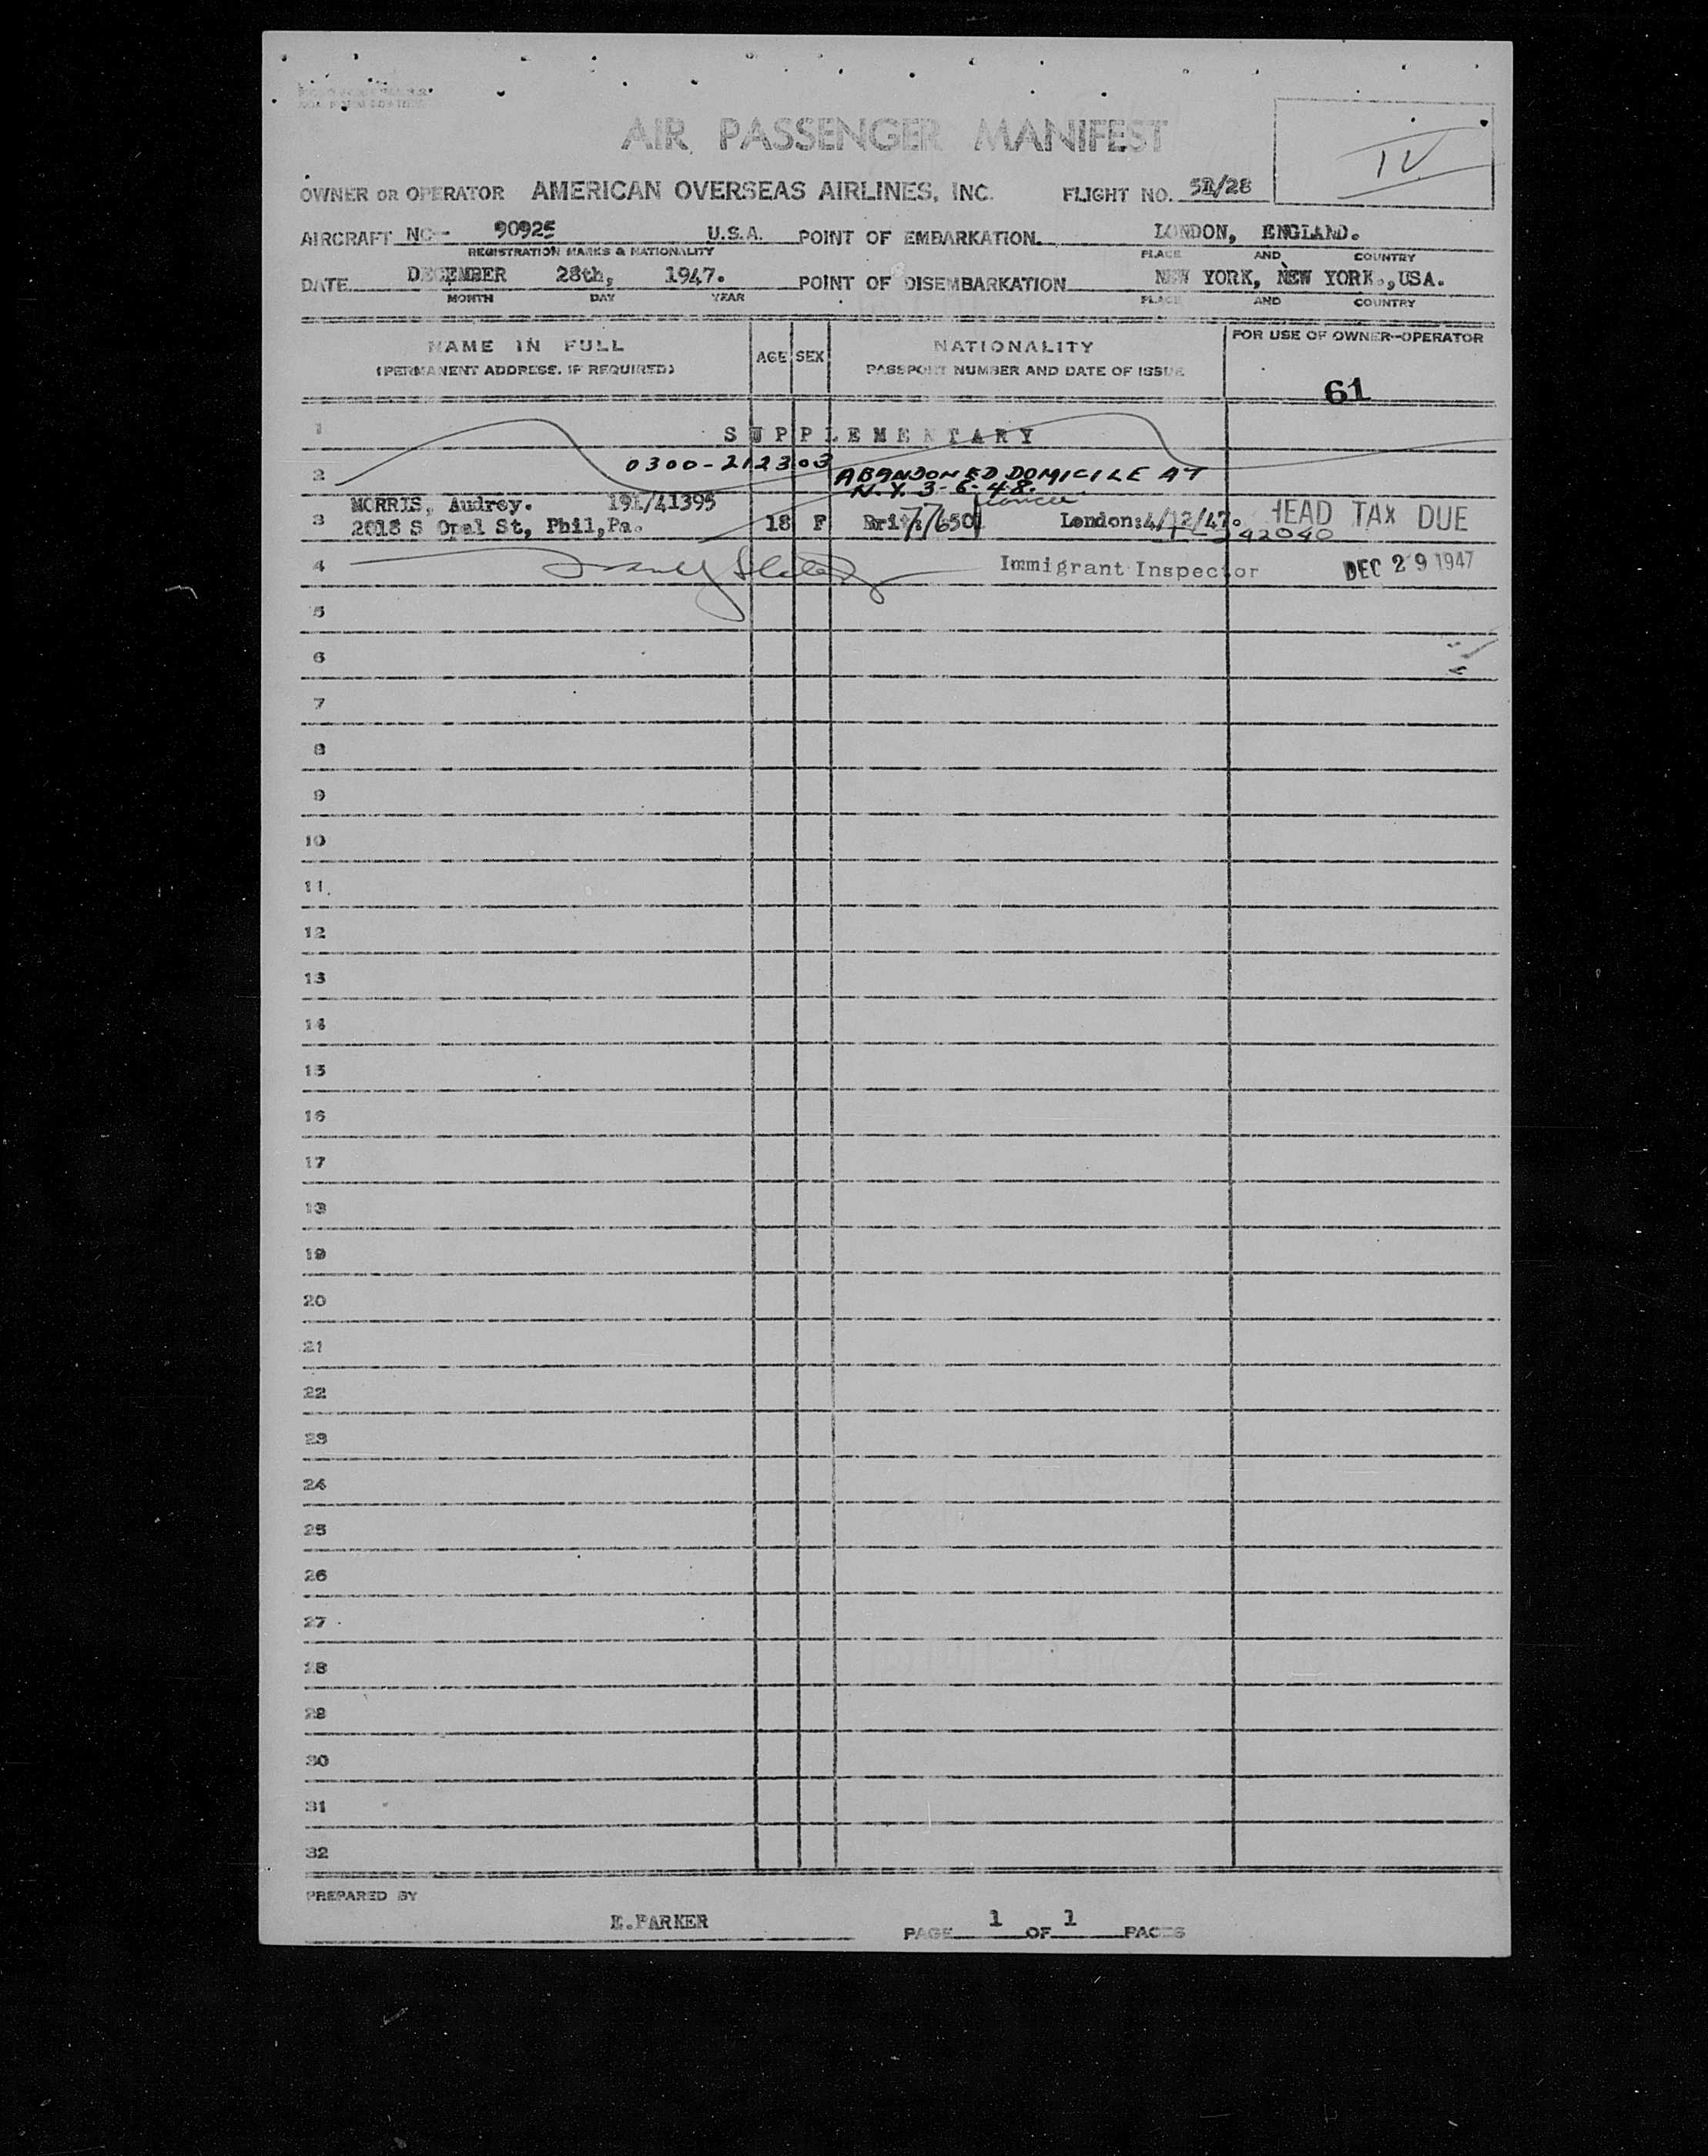 AIR PASSENGER MANIFEST
IV
OWNER OR OPERATOR AMERICAN OVERSEAS AIRLINES, INC. FLIGHT NO. /28
AIRCRAFT NC- 90925 U.S.A. POINT OF EMBARKATION LONDON, ENGLAND.
REGISTRATION MARKS & NATIONALITY PLACE AND COUNTRY
DATE DECEMBER 28th, 1947. POINT OF DISEMBARKATION NEW YORK, NEW YORK.,USA.
MONTH DAY YEAR PLACE AND COUNTRY
NAME IN FULL AGE SEX NATIONALITY FOR USE OF OWNER-OPERATOR
(PERMANENT ADDRESS, IF REQUIRED) PASSPORT NUMBER AND DATE OF ISSUE
61
1 SUPPLEMENTARY
2 0300-212303 ABANDONED DOMICILE AT
N.Y. 3-6-48.
MORRIS, Audrey. /41395
3 2018 S Opal St, Phil,Pa. 18 F Brit: 77650 London:4/12/47. HEAD TAX DUE
4 Immigrant Inspector DEC 29 1947
5
6
7
8
9
10
11
12
13
14
15
16
17
18
19
20
21
22
23
24
25
26
27
28
29
30
31
32
PREPARED BY
E.PARKER PAGE 1 OF 1 PAGES